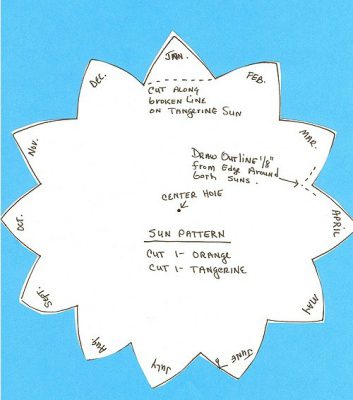 JAN.
DEC.
FEB.
CUT ALONG
broken Line
on TANGERINE SUN
NOV.
MAR.
DRAW OUTLINE 1/8"
from Edge Around
both SUNS.
CENTER HOLE
OCT.
APRIL
SUN PATTERN
CUT 1- ORANGE
CUT 1- TANGERINE
Sept.
MAY
Aug
July
JUNE